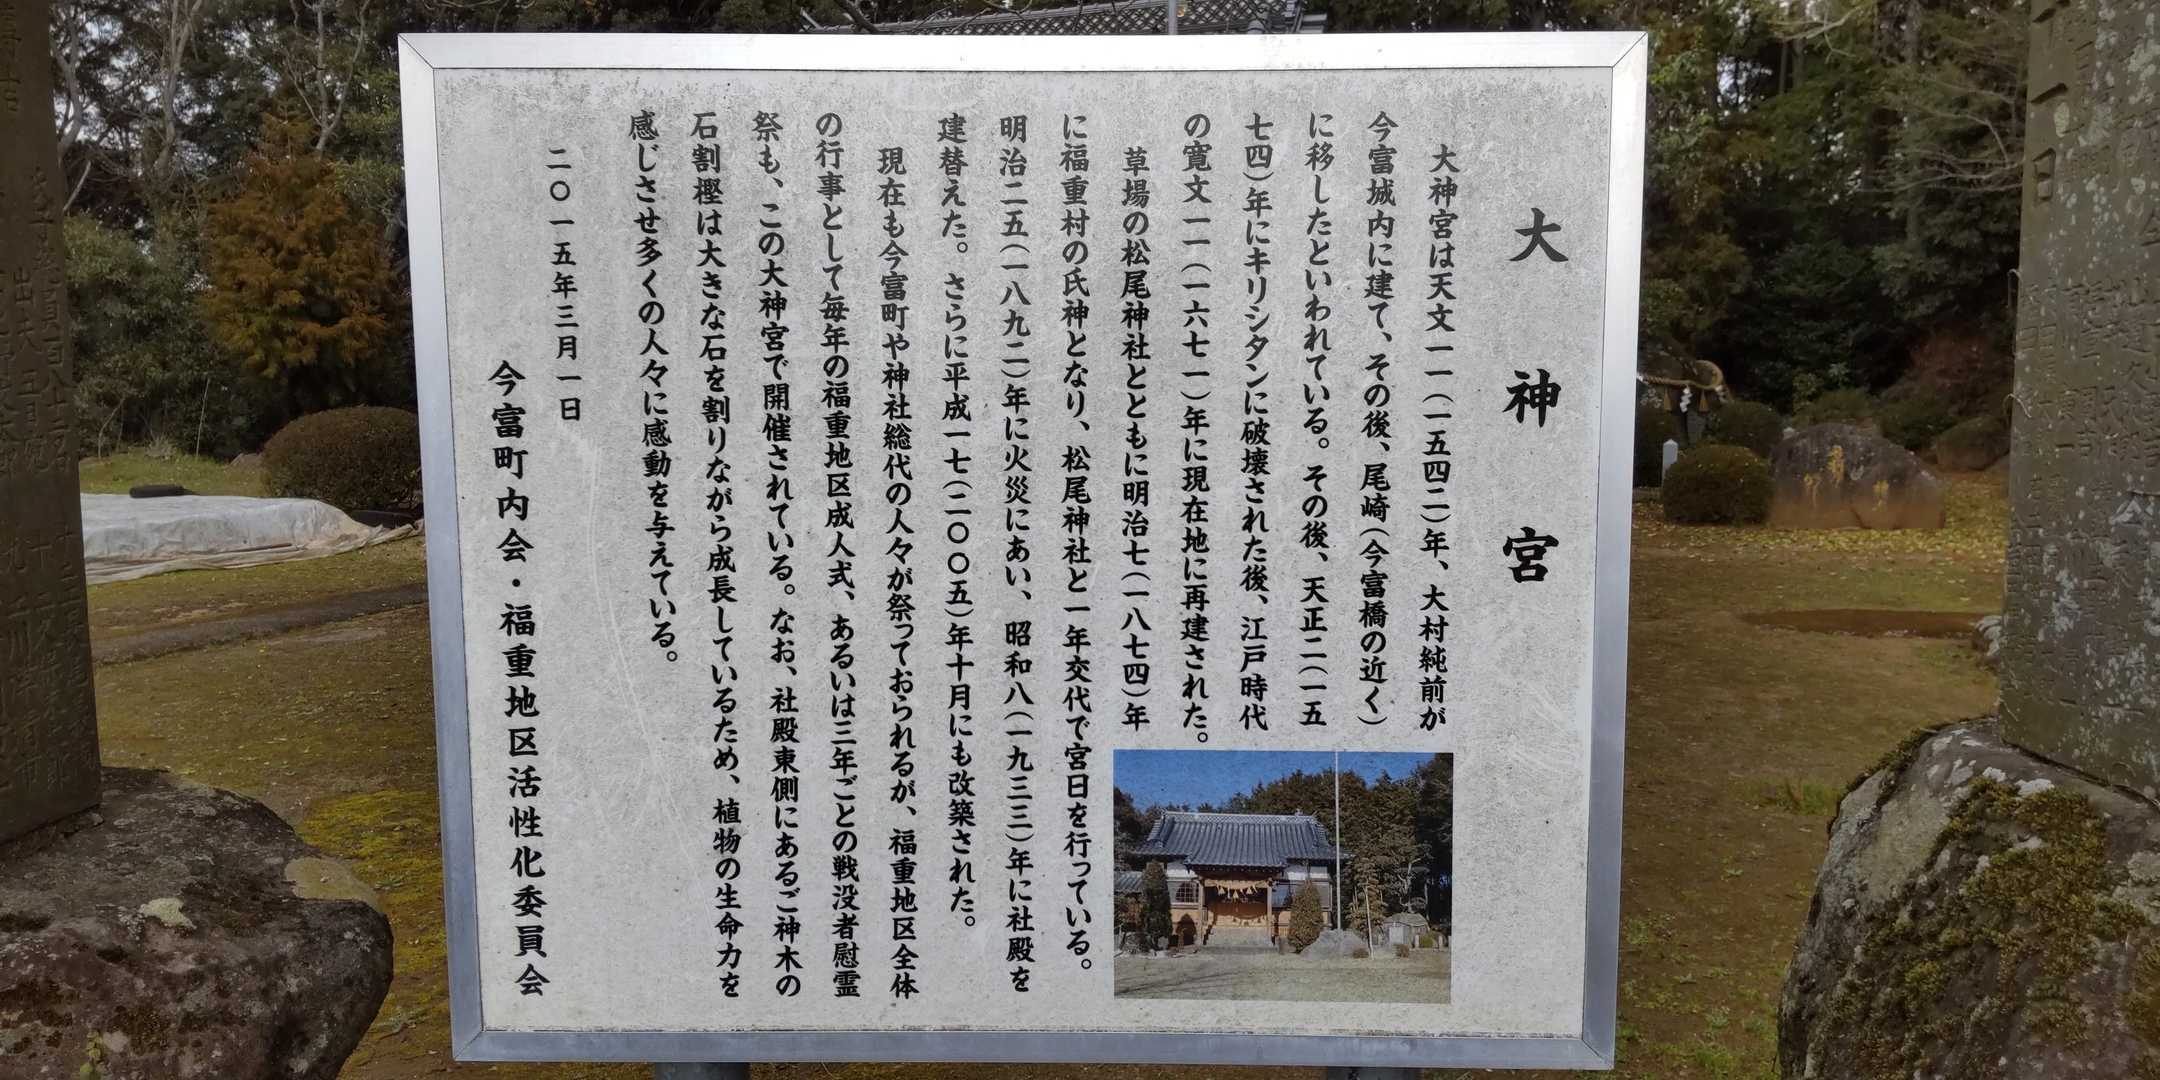 大神宮
大神宮は天文一一(一五四二)年、大村純前が
今富城内に建て、その後、尾崎(今富橋の近く)
に移したといわれている。その後、天正二(一五
七四)年にキリシタンに破壊された後、江戸時代
の寛文一一(一六七一)年に現在地に再建された。
草場の松尾神社とともに明治七(一八七四)年
に福重村の氏神となり、松尾神社と一年交代で宮日を行っている。
明治二五(一八九二)年に火災にあい、昭和八(一九三三)年に社殿を
建替えた。さらに平成一七(二〇〇五)年十月にも改築された。
現在も今富町や神社総代の人々が祭っておられるが、福重地区全体
の行事として毎年の福重地区成人式、あるいは三年ごとの戦没者慰霊
祭も、この大神宮で開催されている。なお、社殿東側にあるご神木の
石割樫は大きな石を割りながら成長しているため、植物の生命力を
感じさせ多くの人々に感動を与えている。
二〇一五年三月一日
今富町内会・福重地区活性化委員会